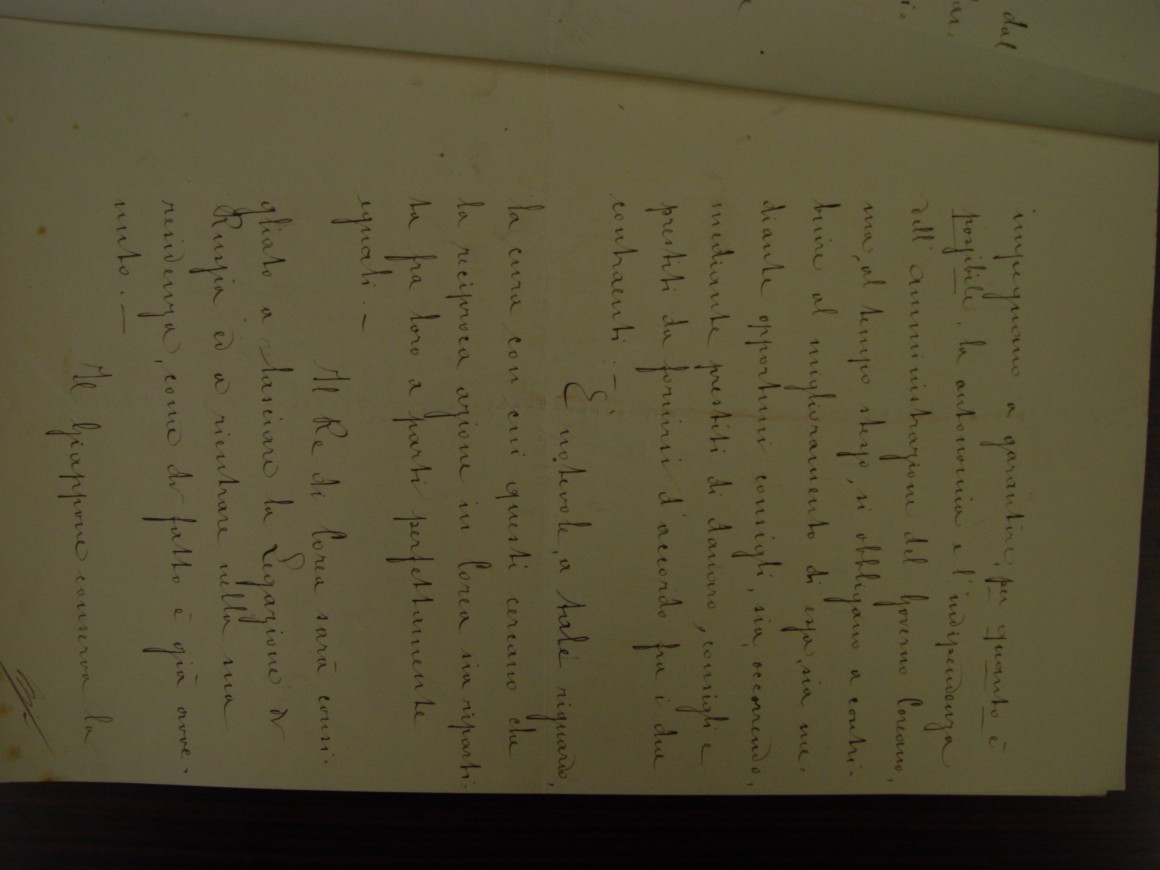 dal
impegnano a garantire, per quanto è
possibile, la autonomia e l'indipendenza
dell'amministrazione del Governo Coreano,
ma, al tempo stesso, si obbligano a contri-
buire al miglioramento di essa, sia me-
diante opportuni consigli, sia, occorrendo,
mediante prestiti di danaro, consigli e
prestiti da fornirsi d'accordo fra i due
contraenti. —
È notevole, a tale riguardo,
la cura con cui questi cercano che
la reciproca azione in Corea sia riparti-
ta fra loro a parti perfettamente
eguali. —
Il Re di Corea sarà consi-
gliato a lasciare la Legazione di
Russia ed a rientrare nella sua
residenza, come di fatto è già avve-
nuto. —
Il Giappone conserva la